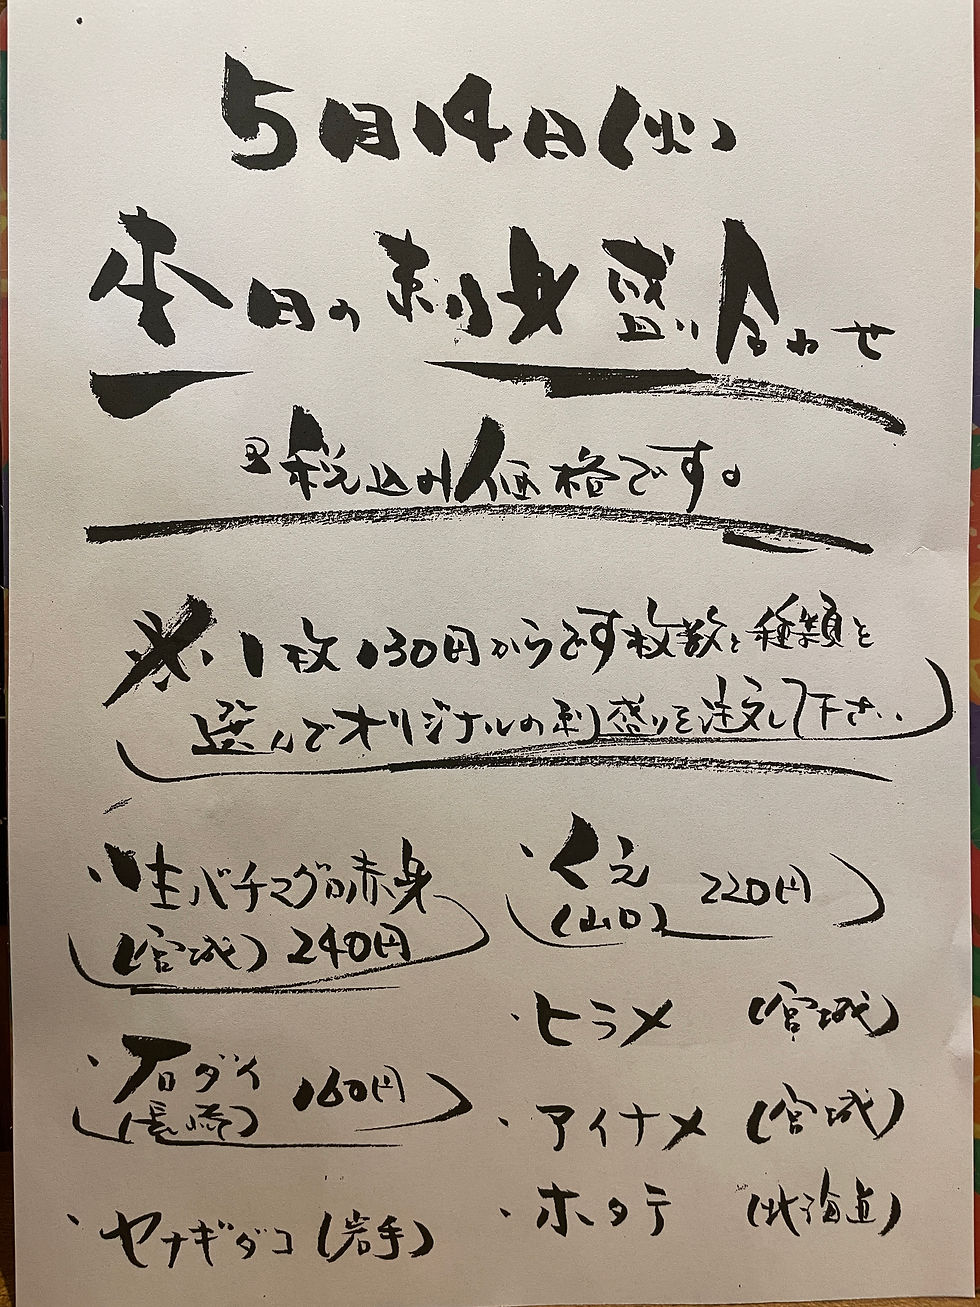 5月14日(火)
本日の刺身盛り合わせ
※税込み価格です。
※1枚130円からです枚数と種類を
選んでオリジナルの刺盛りを注文して下さい。
・生バチマグロ赤身
(宮城) 240円
・イロダイ 160円
(長崎)
・ヤナギダコ (岩手)
・くえ 220円
(山口)
・ヒラメ (宮城)
・アイナメ (宮城)
・ホタテ (北海道)